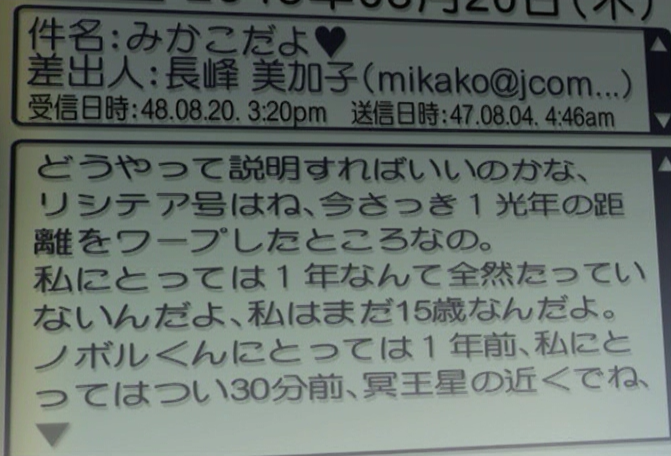 件名:みかこだよ♥
差出人:長峰 美加子(mikako@jcom...)
受信日時:48.08.20. 3:20pm 送信日時:47.08.04. 4:46am
どうやって説明すればいいのかな、
リシテア号はね、今さっき1光年の距
離をワープしたところなの。
私にとっては1年なんて全然たってい
ないんだよ、私はまだ15歳なんだよ。
ノボルくんにとっては1年前、私にと
ってはつい30分前、冥王星の近くでね、